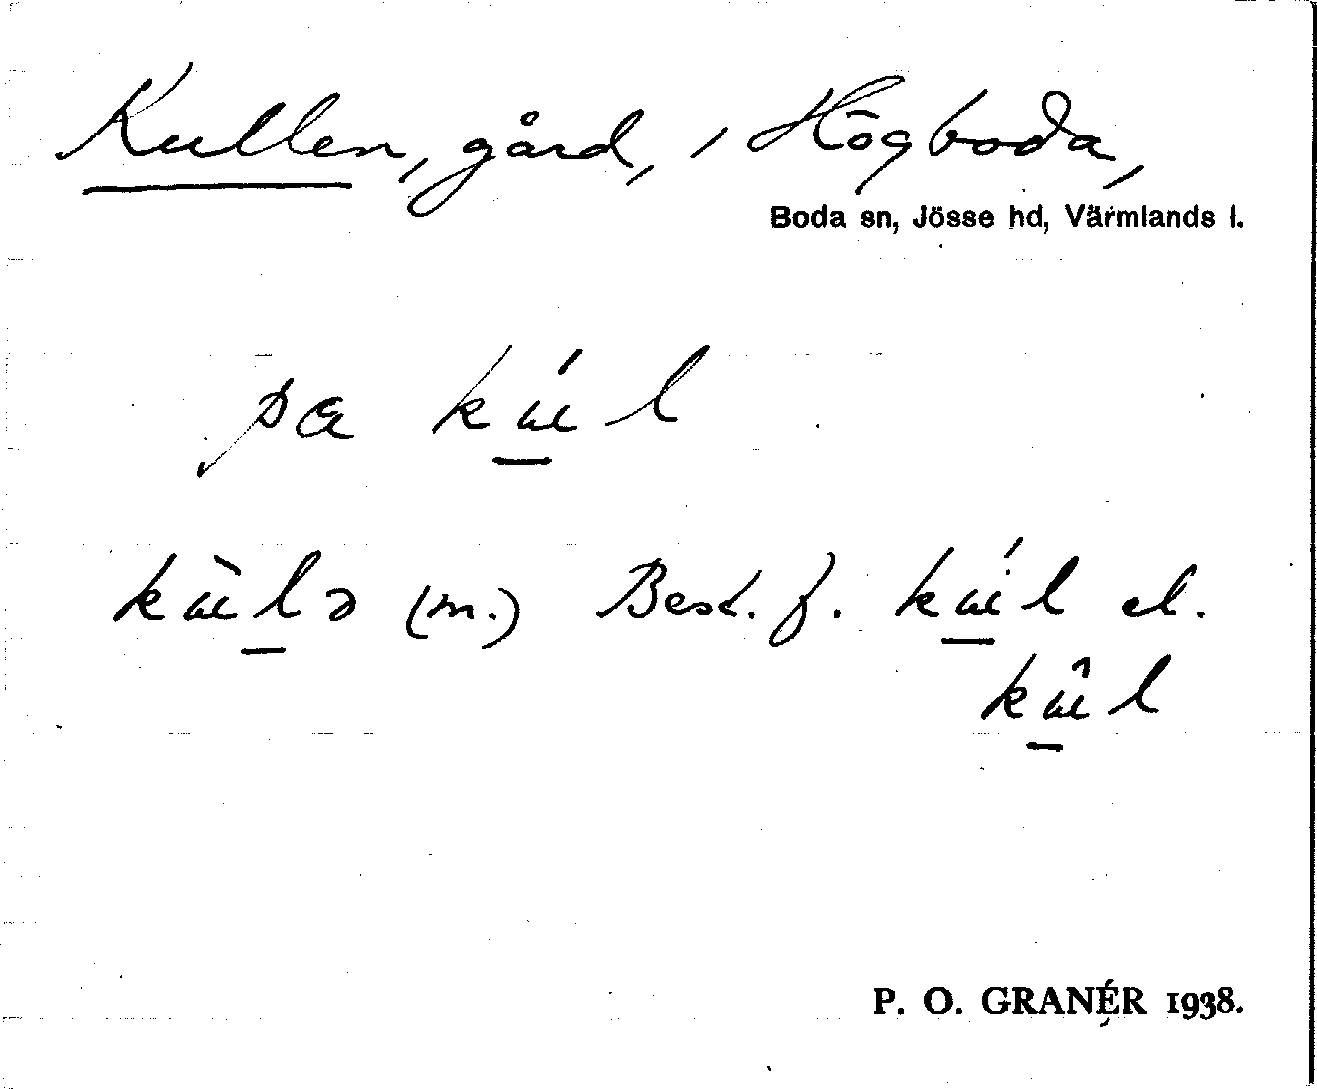 Kullen, gård, i Högboda,
Boda sn, Jösse hd, Värmlands l.
pa kúl
kùlə (m.) Best. f. kúl el.
kûl
P. O. GRANÉR 1938.